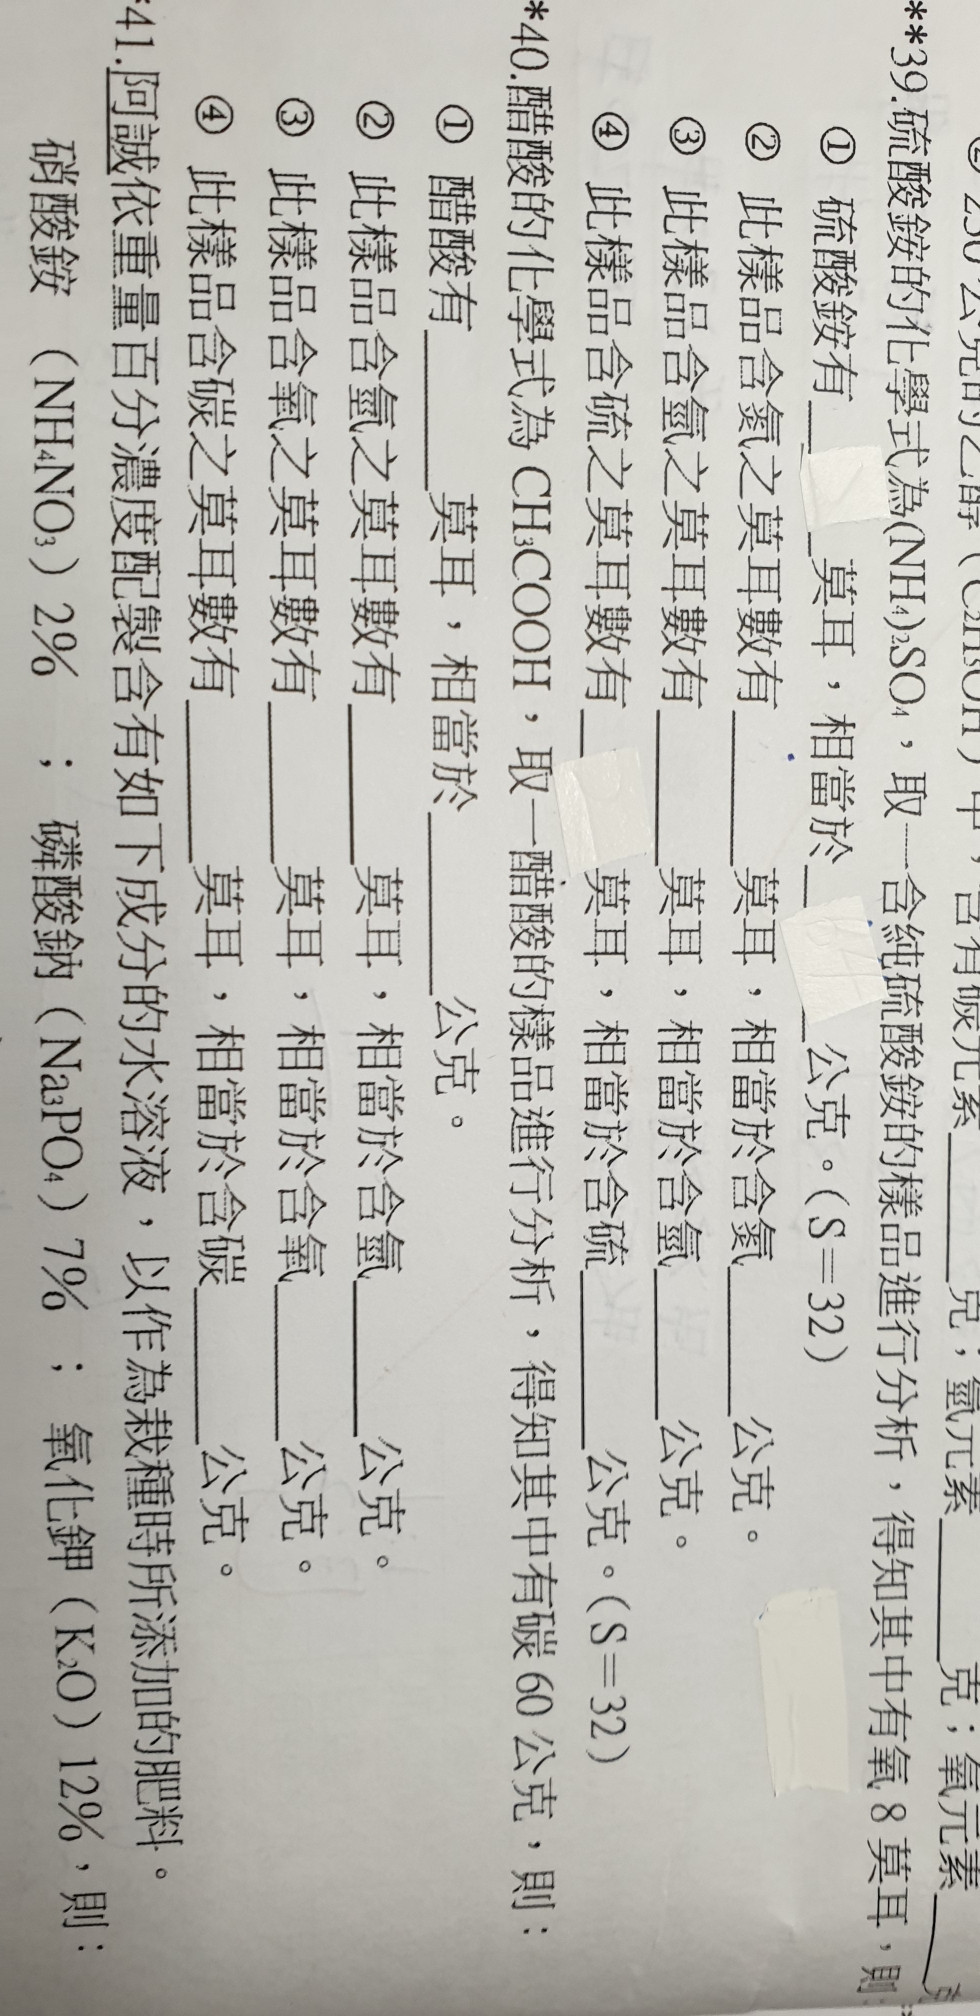 ② 250 公克的乙醇（C₂H₅OH）中，含有碳元素______克；氫元素______克；氧元素______克
**39.硫酸銨的化學式為(NH₄)₂SO₄，取一含純硫酸銨的樣品進行分析，得知其中有氧 8 莫耳，則：
① 硫酸銨有______莫耳，相當於______公克。（S＝32）
② 此樣品含氮之莫耳數有______莫耳，相當於含氮______公克。
③ 此樣品含氫之莫耳數有______莫耳，相當於含氫______公克。
④ 此樣品含硫之莫耳數有______莫耳，相當於含硫______公克。（S＝32）
*40.醋酸的化學式為 CH₃COOH，取一醋酸的樣品進行分析，得知其中有碳 60 公克，則：
① 醋酸有______莫耳，相當於______公克。
② 此樣品含氫之莫耳數有______莫耳，相當於含氫______公克。
③ 此樣品含氧之莫耳數有______莫耳，相當於含氧______公克。
④ 此樣品含碳之莫耳數有______莫耳，相當於含碳______公克。
*41.阿誠依重量百分濃度配製含有如下成分的水溶液，以作為栽種時所添加的肥料。
硝酸銨（NH₄NO₃）2%　；　磷酸鈉（Na₃PO₄）7%　；　氧化鉀（K₂O）12%，則：